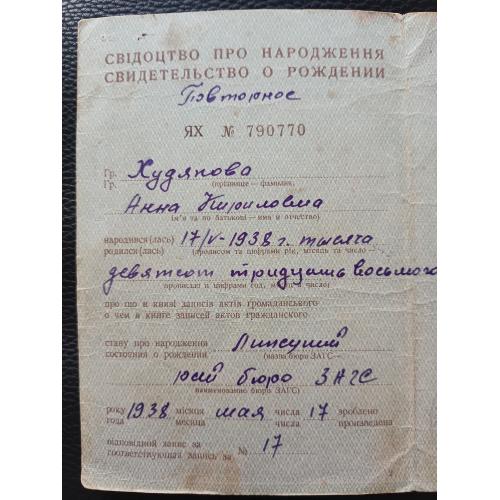 СВІДОЦТВО ПРО НАРОДЖЕННЯ
СВИДЕТЕЛЬСТВО О РОЖДЕНИИ
Повторное
ЯХ № 790770
Гр. Худякова
Гр. (прізвище — фамилия,
Анна Кириловна
ім'я та по батькові — имя и отчество)
народився(лась) 17/V-1938 г. тысяча
родился(лась) (прописом та цифрами рік, місяць та число —
девятсот тридцать восьмого
прописью и цифрами год, месяц и число)
про що в книзі записів актів громадянського
о чем в книге записей актов гражданского
стану про народження Липецкий
состояния о рождении (назва бюро ЗАГС —
рай бюро ЗАГС
наименование бюро ЗАГС)
року 1938 місяця мая числа 17 зроблено
года месяца числа произведена
відповідной запис за № 17
соответствующая запись за